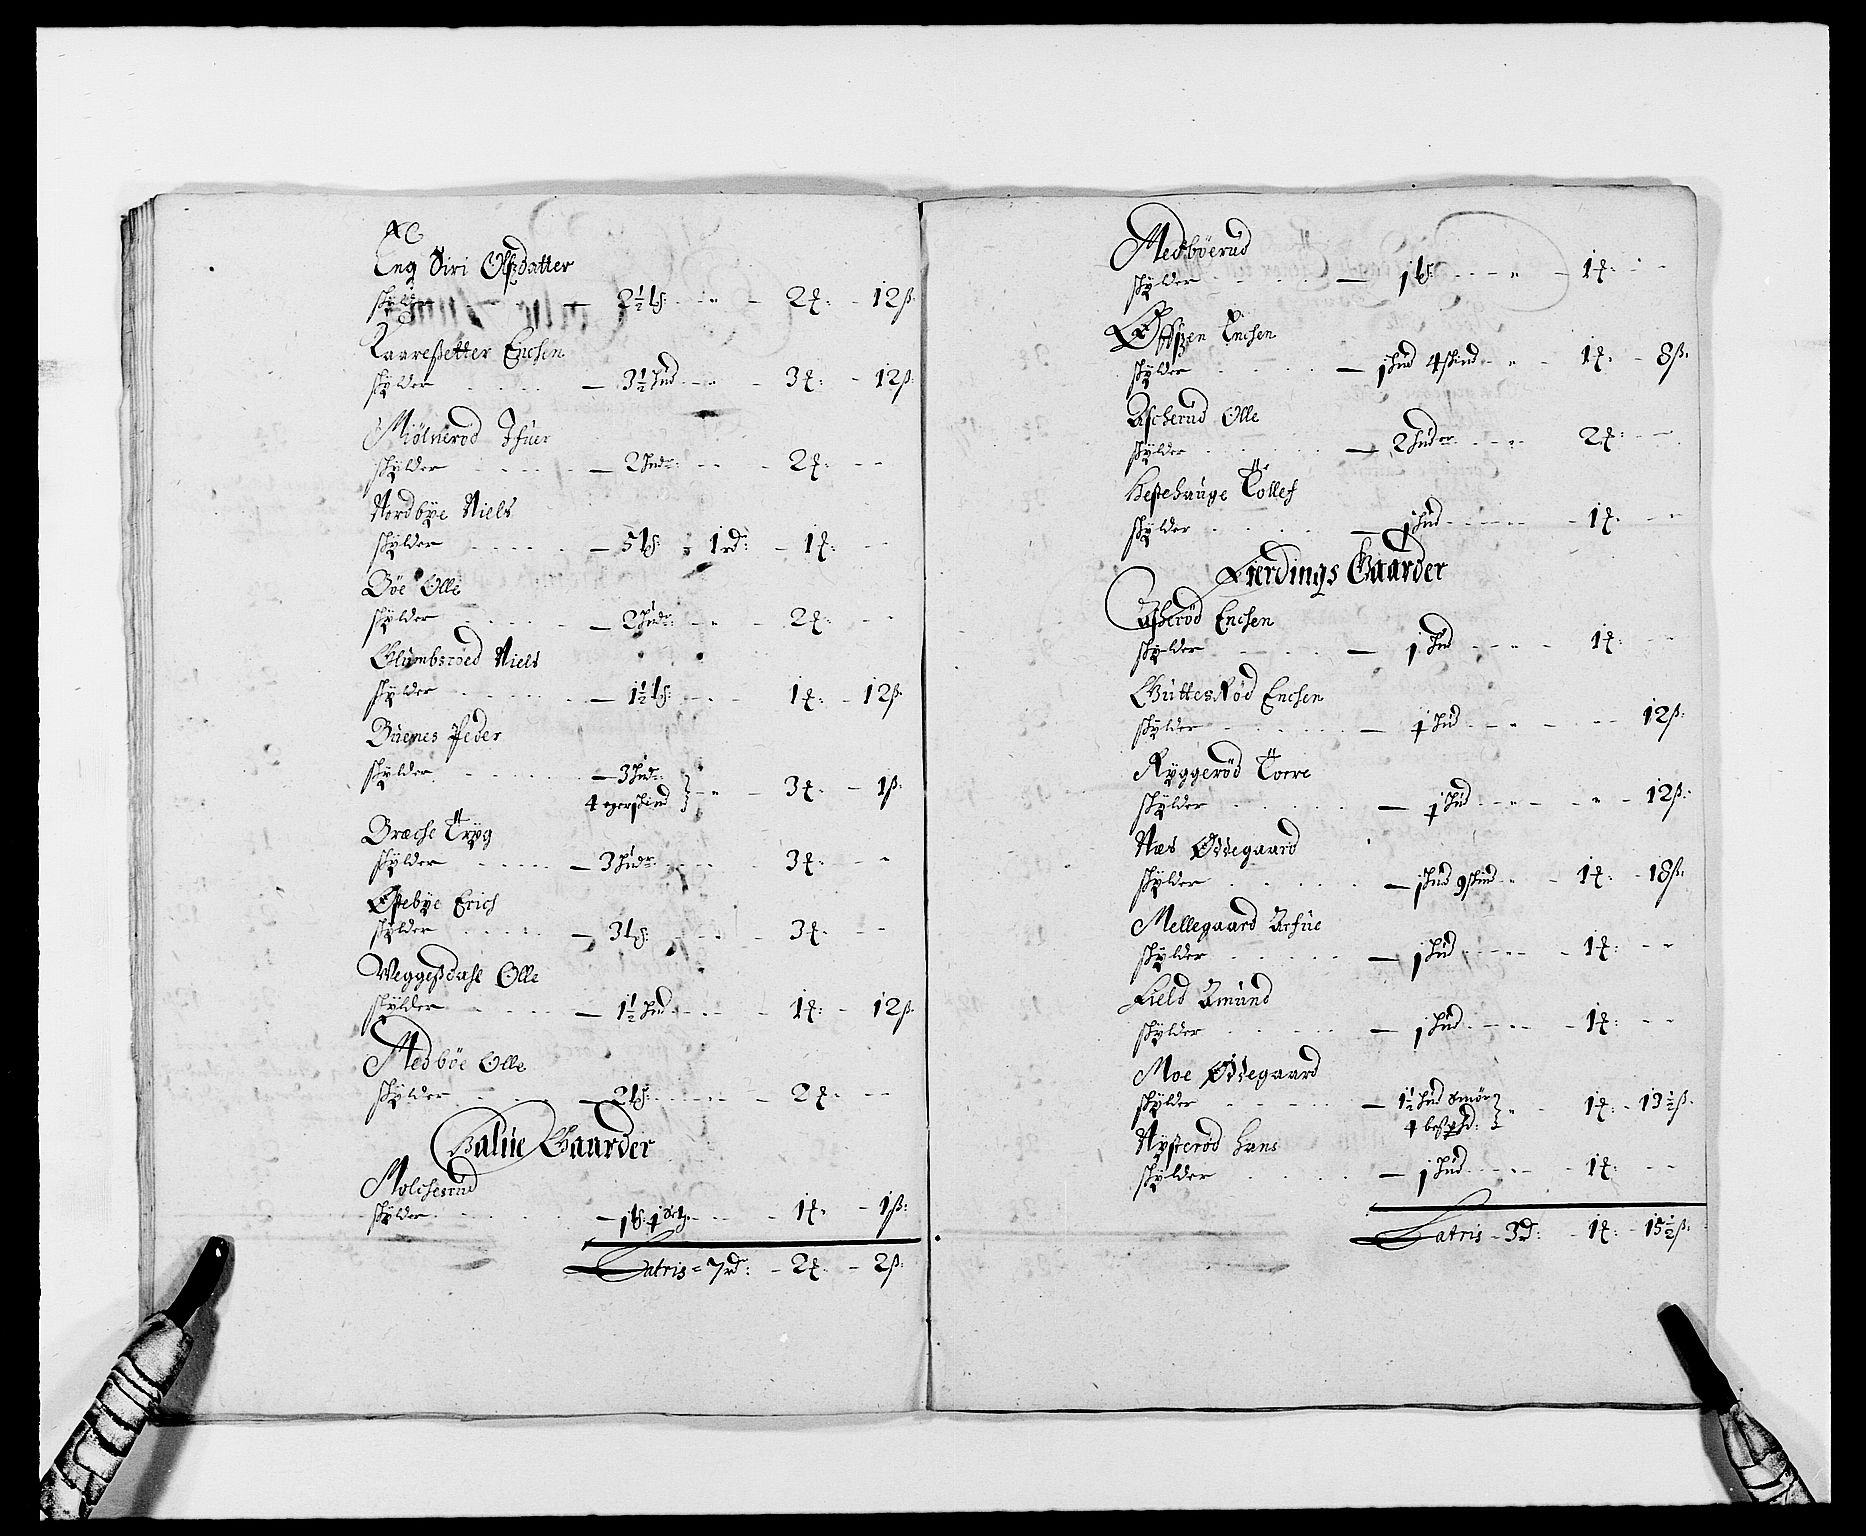 Eng Siri Olsdatter
skylder - - - 2½ lß: - - - 2 ꝝ: - 12 ß:
Kaareßetter Erichsen
skylder - - - 3½ hud - - - 3 ꝝ: - 12 ß:
Miölnerød Ifuer
skylder - - - 2 hudr: - - - 2 ꝝ: - -
Nordbÿe Niels
skylder - - - 5 lß: - 1 rd: - 1 ꝝ: - -
Böe Olle
skylder - - - 2 hudr: - - - 2 ꝝ: - -
Glumbsröed Niels
skylder - - - 1½ lß: - - - 1 ꝝ: - 12 ß:
Buenes Peder
skylder - - - 3 hudr:
4 egerskind } - - 3 ꝝ: - 1 ß:
Bræche Trÿg
skylder - - - 3 hudr: - - - 3 ꝝ: - -
Østebÿe Erich
skylder - - - 3 lß: - - - 3 ꝝ: - -
Weggeßdahl Olle
skylder - - - 1½ hud - - - 1 ꝝ: - 12 ß:
Medböe Olle
skylder - - - 2 lß: - - - 2 ꝝ: - -
Halfue Gaarder
Molcherud
skylder - - - 1 lß: 1 - - - 1 ꝝ: - 1 ß:
Latris - 7 rd: - 2 ꝝ: - 2 ß:
Medböerud
skylder - - - 1 lß: - - - 1 ꝝ: - -
Erichsen
skylder - - - 1 hud 4 skind - - 1 ꝝ: - 8 ß:
Ascherud Olle
skylder - - - 2 huder - - - 2 ꝝ: - -
Hestehauge Tollef
skylder - - - 1 hud - - - 1 ꝝ: - -
Fierdings Gaarder
Asherød Erichsen
skylder - - - 1 hud - - - 1 ꝝ: - -
Guttesrød Erichsen
skylder - - - 1 hud - - - - 12 ß:
Rÿggerød Torre
skylder - - - 1 hud - - - - 12 ß:
Næs Ødegaard
skylder - - - 1 hud 9 skind - - 1 ꝝ: - 18 ß:
Mellegaard Arfue
skylder - - - 1 hud - - - 1 ꝝ: - -
Field Amund
skylder - - - 1 hud - - - 1 ꝝ: - -
Moe Ødegaard
skylder - - - 1½ hud Smør
4 } - - 1 ꝝ: - 13½ ß:
Nÿsterød Hans
skylder - - - 1 hud - - - 1 ꝝ: - -
Latris - 3 rd: - 1 ꝝ: - 15½ ß: